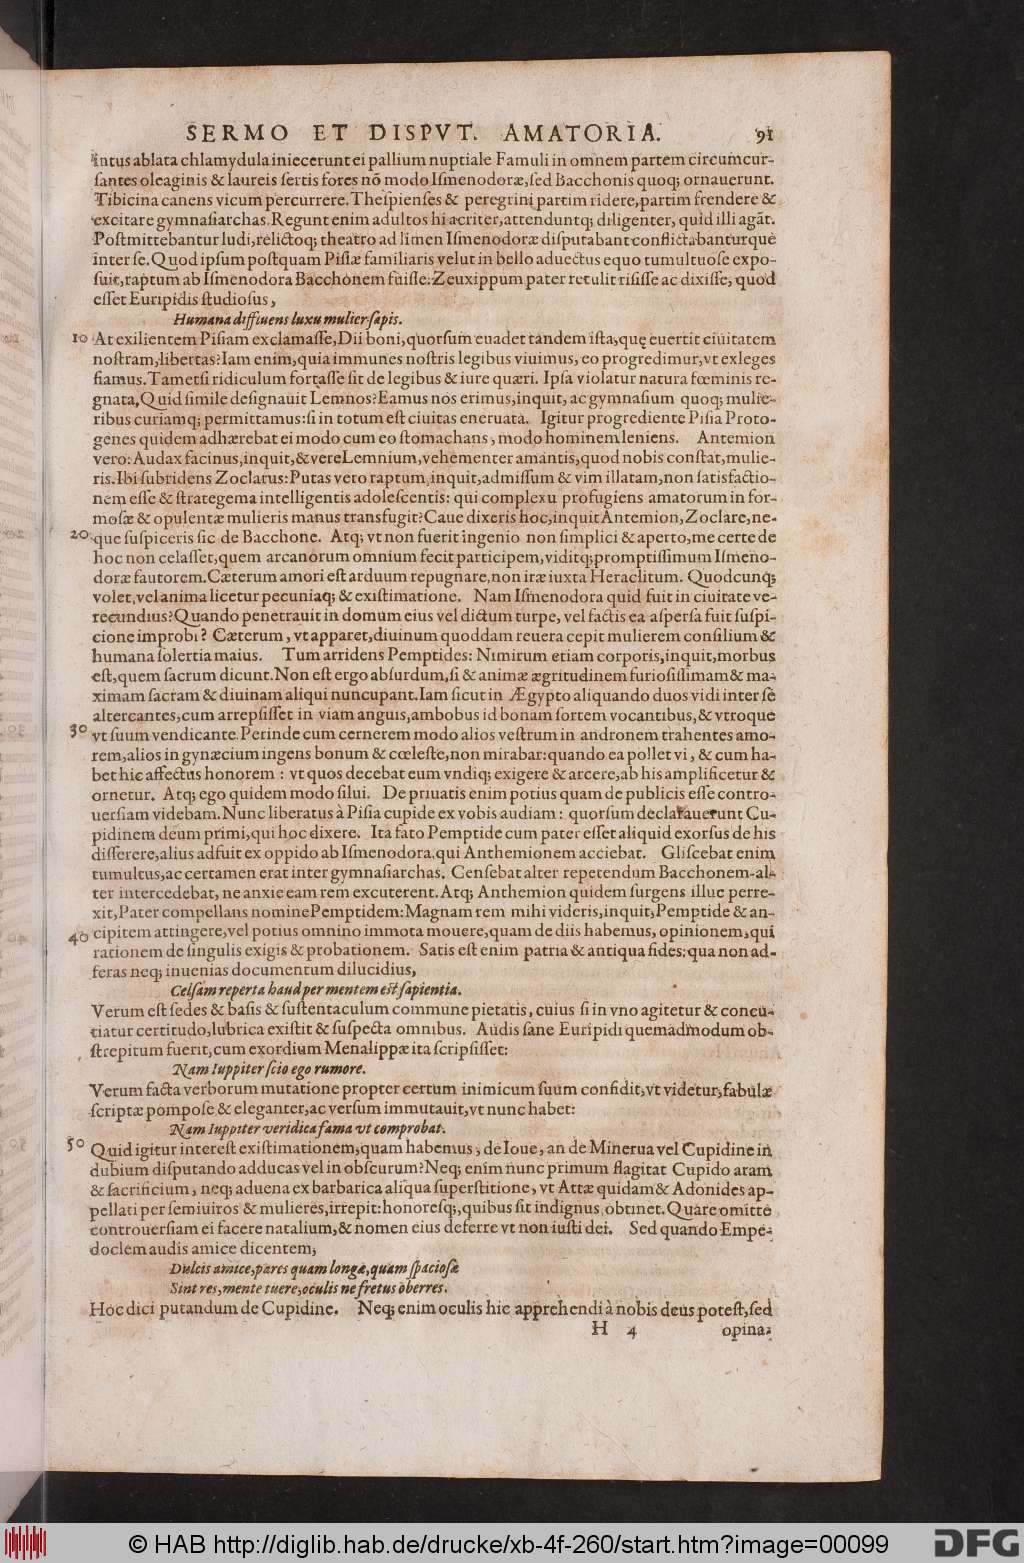 SERMO ET DISPVT. AMATORIA. 91
intus ablata chlamydula iniecerunt ei pallium nuptiale Famuli in omnem partem circumcur-
ſantes oleaginis & laureis ſertis fores nõ modo Iſmenodoræ, ſed Bacchonis quoq; ornauerunt.
Tibicina canens vicum percurrere. Theſpienſes & peregrini partim ridere, partim frendere &
excitare gymnaſiarchas. Regunt enim adultos hi acriter, attenduntq; diligenter, quid illi agãt.
Poſtmittebantur ludi, relictoq; theatro ad limen Iſmenodoræ diſputabant conflictabanturque
inter ſe. Quod ipſum poſtquam Piſiæ familiaris velut in bello aduectus equo tumultuoſe expo-
ſuit, raptum ab Iſmenodora Bacchonem fuiſſe: Zeuxippum pater retulit riſiſſe ac dixiſſe, quod
eſſet Euripidis ſtudioſus,
Humana diffluens luxu mulier ſapis.
10 At exilientem Piſiam exclamaſſe, Dii boni, quorſum euadet tandem iſta, quę euertit ciuitatem
noſtram, libertas? Iam enim, quia immunes noſtris legibus viuimus, eo progredimur, vt exleges
fiamus. Tametſi ridiculum fortaſſe ſit de legibus & iure quæri. Ipſa violatur natura fœminis re-
gnata, Quid ſimile deſignauit Lemnos? Eamus nos erimus, inquit, ac gymnaſium quoq; mulie-
ribus curiamq; permittamus: ſi in totum eſt ciuitas eneruata. Igitur progrediente Piſia Proto-
genes quidem adhærebat ei modo cum eo ſtomachans, modo hominem leniens. Antemion
vero: Audax facinus, inquit, & vere Lemnium, vehementer amantis, quod nobis conſtat, mulie-
ris. Ibi ſubridens Zoclarus: Putas vero raptum, inquit, admiſſum & vim illatam, non ſatisfactio-
nem eſſe & ſtrategema intelligentis adoleſcentis: qui complexu profugiens amatorum in for-
moſæ & opulentæ mulieris manus transfugit? Caue dixeris hoc, inquit Antemion, Zoclare, ne-
20 que ſuſpiceris ſic de Bacchone. Atq; vt non fuerit ingenio non ſimplici & aperto, me certe de
hoc non celaſſet, quem arcanorum omnium fecit participem, viditq; promptiſſimum Iſmeno-
doræ fautorem. Cæterum amori eſt arduum repugnare, non iræ iuxta Heraclitum. Quodcunq;
volet, vel anima licetur pecuniaq; & exiſtimatione. Nam Iſmenodora quid fuit in ciuitate ve-
recundius? Quando penetrauit in domum eius vel dictum turpe, vel factis ea aſperſa fuit ſuſpi-
cione improbi? Cæterum, vt apparet, diuinum quoddam reuera cepit mulierem conſilium &
humana ſolertia maius. Tum arridens Pemptides: Nimirum etiam corporis, inquit, morbus
eſt, quem ſacrum dicunt. Non eſt ergo abſurdum, ſi & animæ ægritudinem furioſiſſimam & ma-
ximam ſacram & diuinam aliqui nuncupant. Iam ſicut in Ægypto aliquando duos vidi inter ſe
altercantes, cum arrepſiſſet in viam anguis, ambobus id bonam ſortem vocantibus, & vtroque
30 vt ſuum vendicante. Perinde cum cernerem modo alios veſtrum in andronem trahentes amo-
rem, alios in gynæcium ingens bonum & cœleſte, non mirabar: quando ea pollet vi, & cum ha-
bet hic affectus honorem: vt quos decebat eum vndiq; exigere & arcere, ab his amplificetur &
ornetur. Atq; ego quidem modo ſilui. De priuatis enim potius quam de publicis eſſe contro-
uerſiam videbam. Nunc liberatus à Piſia cupide ex vobis audiam: quorſum declarauerunt Cu-
pidinem deum primi, qui hoc dixere. Ita fato Pemptide cum pater eſſet aliquid exorſus de his
differere, alius adfuit ex oppido ab Iſmenodora, qui Anthemionem acciebat. Gliſcebat enim
tumultus, ac certamen erat inter gymnaſiarchas. Cenſebat alter repetendum Bacchonem, al-
ter intercedebat, ne anxie eam rem excuterent. Atq; Anthemion quidem ſurgens illuc perre-
xit, Pater compellans nomine Pemptidem: Magnam rem mihi videris, inquit, Pemptide & an-
40 cipitem attingere, vel potius omnino immota mouere, quam de diis habemus, opinionem, qui
rationem de ſingulis exigis & probationem. Satis eſt enim patria & antiqua fides: qua non ad-
feras neq; inuenias documentum dilucidius,
Celſam reperta haud per mentem eſt ſapientia.
Verum eſt ſedes & baſis & ſuſtentaculum commune pietatis, cuius ſi in vno agitetur & concu-
tiatur certitudo, lubrica exiſtit & ſuſpecta omnibus. Audis ſane Euripidi quemadmodum ob-
ſtrepitum fuerit, cum exordium Menalippæ ita ſcripſiſſet:
Nam Iuppiter ſcio ego rumore.
Verum facta verborum mutatione propter certum inimicum ſuum confidit, vt videtur, fabulæ
ſcriptæ pompoſe & eleganter, ac verſum immutauit, vt nunc habet:
Nam Iuppiter veridica fama vt comprobat.
50 Quid igitur intereſt exiſtimationem, quam habemus, de Ioue, an de Minerua vel Cupidine in
dubium diſputando adducas vel in obſcurum? Neq; enim nunc primum flagitat Cupido aram
& ſacrificium, neq; aduena ex barbarica aliqua ſuperſtitione, vt Attæ quidam & Adonides ap-
pellati per ſemiuiros & mulieres, irrepit: honoreſq;, quibus ſit indignus obtinet. Quare omitte
controuerſiam ei facere natalium, & nomen eius deferre vt non iuſti dei. Sed quando Empe-
doclem audis amice dicentem,
Dulcis amice, pares quam longæ, quam ſpacioſæ
Sint res, mente tuere, oculis ne fretus oberres.
Hoc dici putandum de Cupidine. Neq; enim oculis hic apprehendi à nobis deus poteſt, ſed
H 4 opina-
© HAB http://diglib.hab.de/drucke/xb-4f-260/start.htm?image=00099
DFG